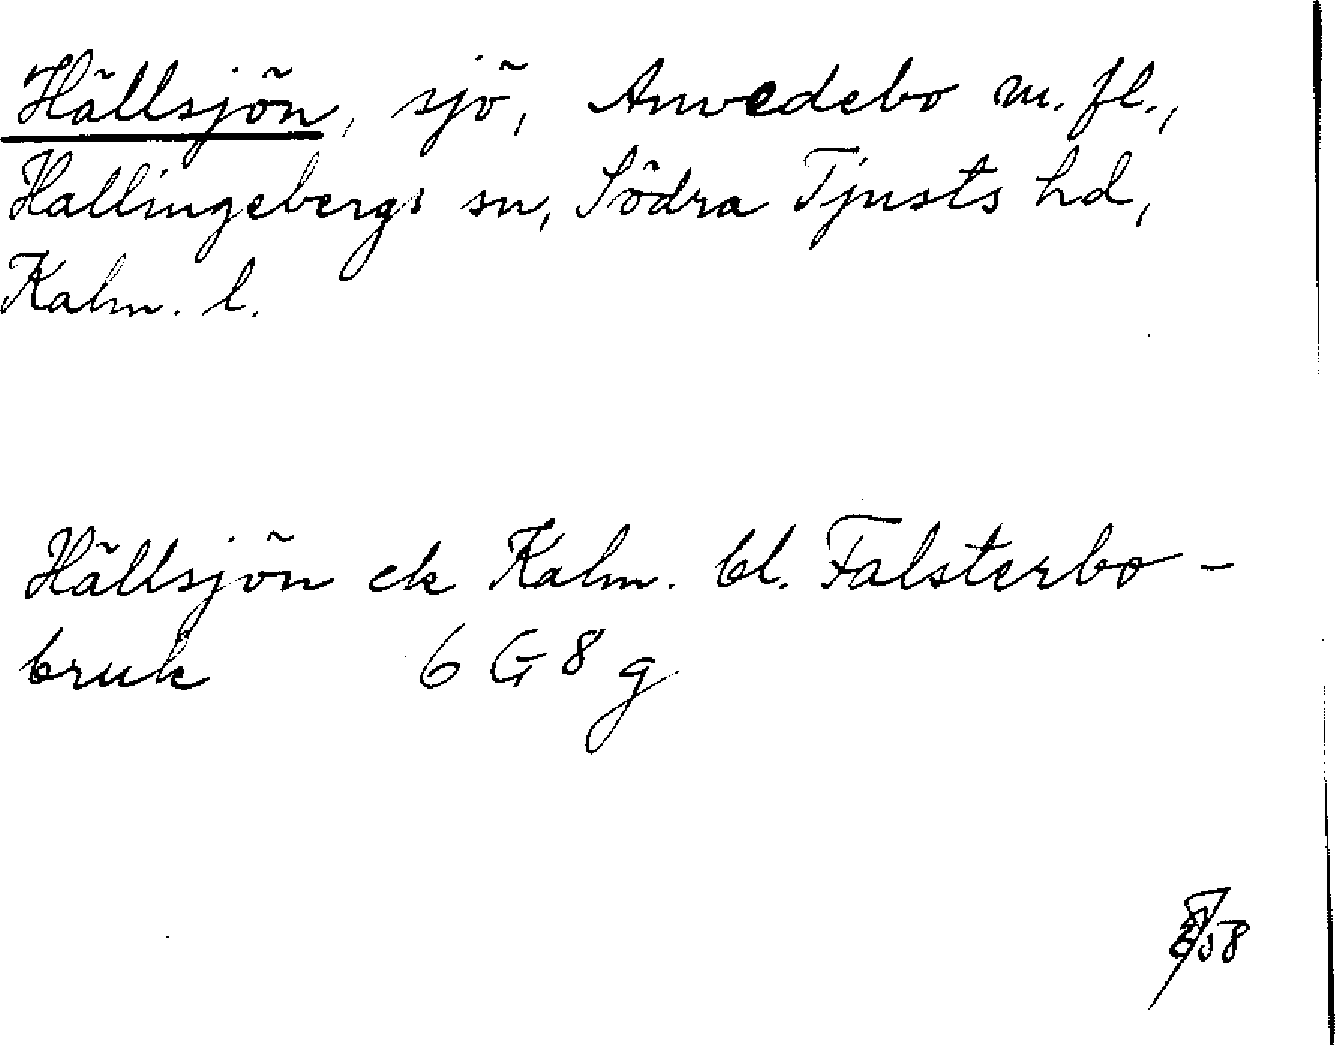 Hällsjön, sjö, Anvedebo m. fl.,
Hallingebergs sn, Södra Tjusts hd,
Kalm. l.
Hällsjön ek Kalm. bl. Falsterbo-
bruk 6 G 8 g